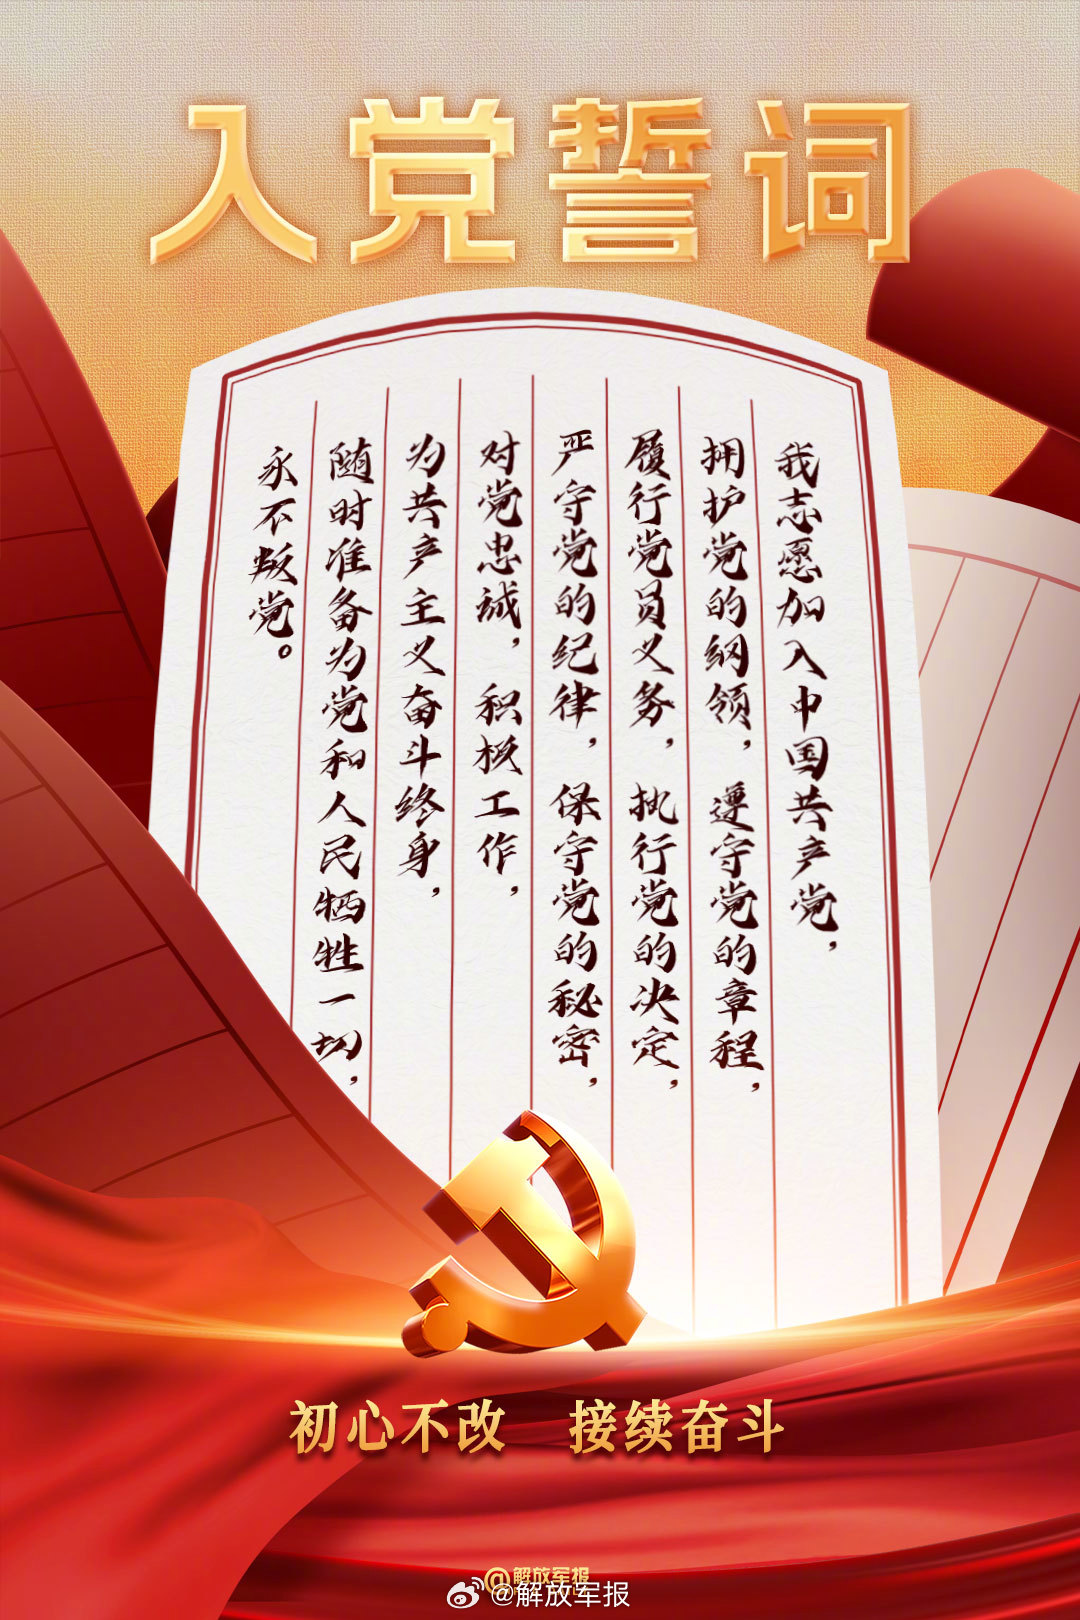 入党誓词
我志愿加入中国共产党，
拥护党的纲领，遵守党的章程，
履行党员义务，执行党的决定，
严守党的纪律，保守党的秘密，
对党忠诚，积极工作，
为共产主义奋斗终身，
随时准备为党和人民牺牲一切，
永不叛党。
初心不改 接续奋斗
@解放军报
@解放军报